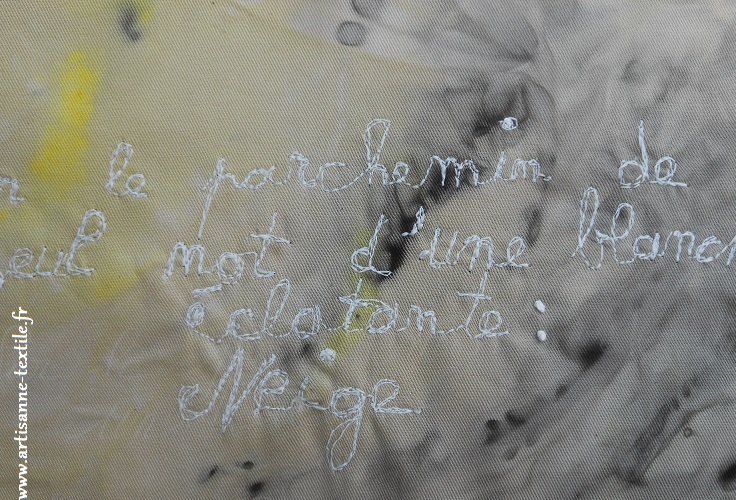 le parchemin de
mot d'une
éclatante :
Neige
www.artisanne-textile.fr